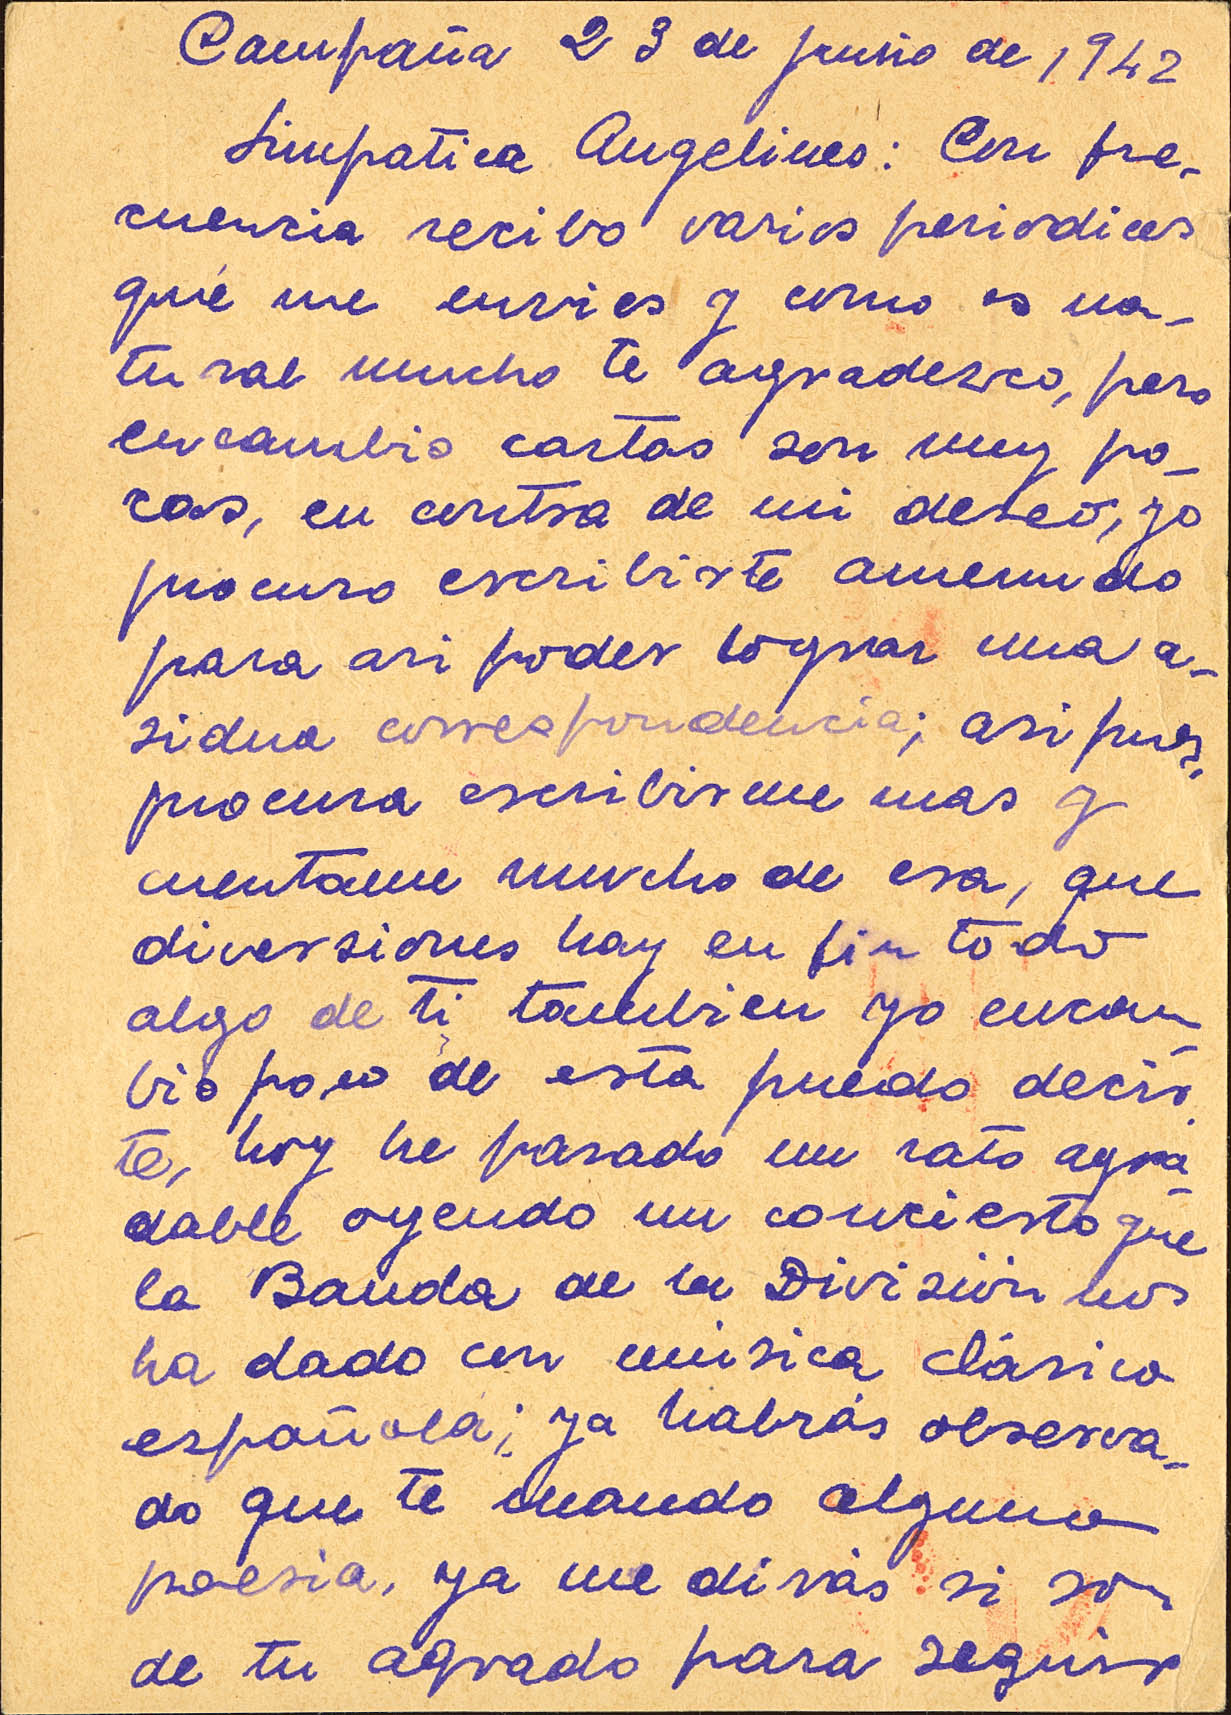 Campaña 23 de junio de 1942
Simpatica Angelines: Con fre-
cuencia recibo varios periodicos
qué me envies y como es na-
tural mucho te agradezco, pero
encambio cartas son muy po-
cas, en contra de mi deseo, yo
procuro escribirte amenudo
para asi poder lograr una a-
sidua correspondencia; asi pues,
procura escribirme mas y
cuentame mucho de esa, que
diversiones hay en fin todo
algo de ti tambien yo encam
bio poco de esta puedo decir
te, hoy he pasado un rato agra
dable oyendo un concierto que
la Banda de la División nos
ha dado con música clásica
española; ya habrás observa-
do que te mando alguna
poesia, ya me dirás si son
de tu agrado para seguir